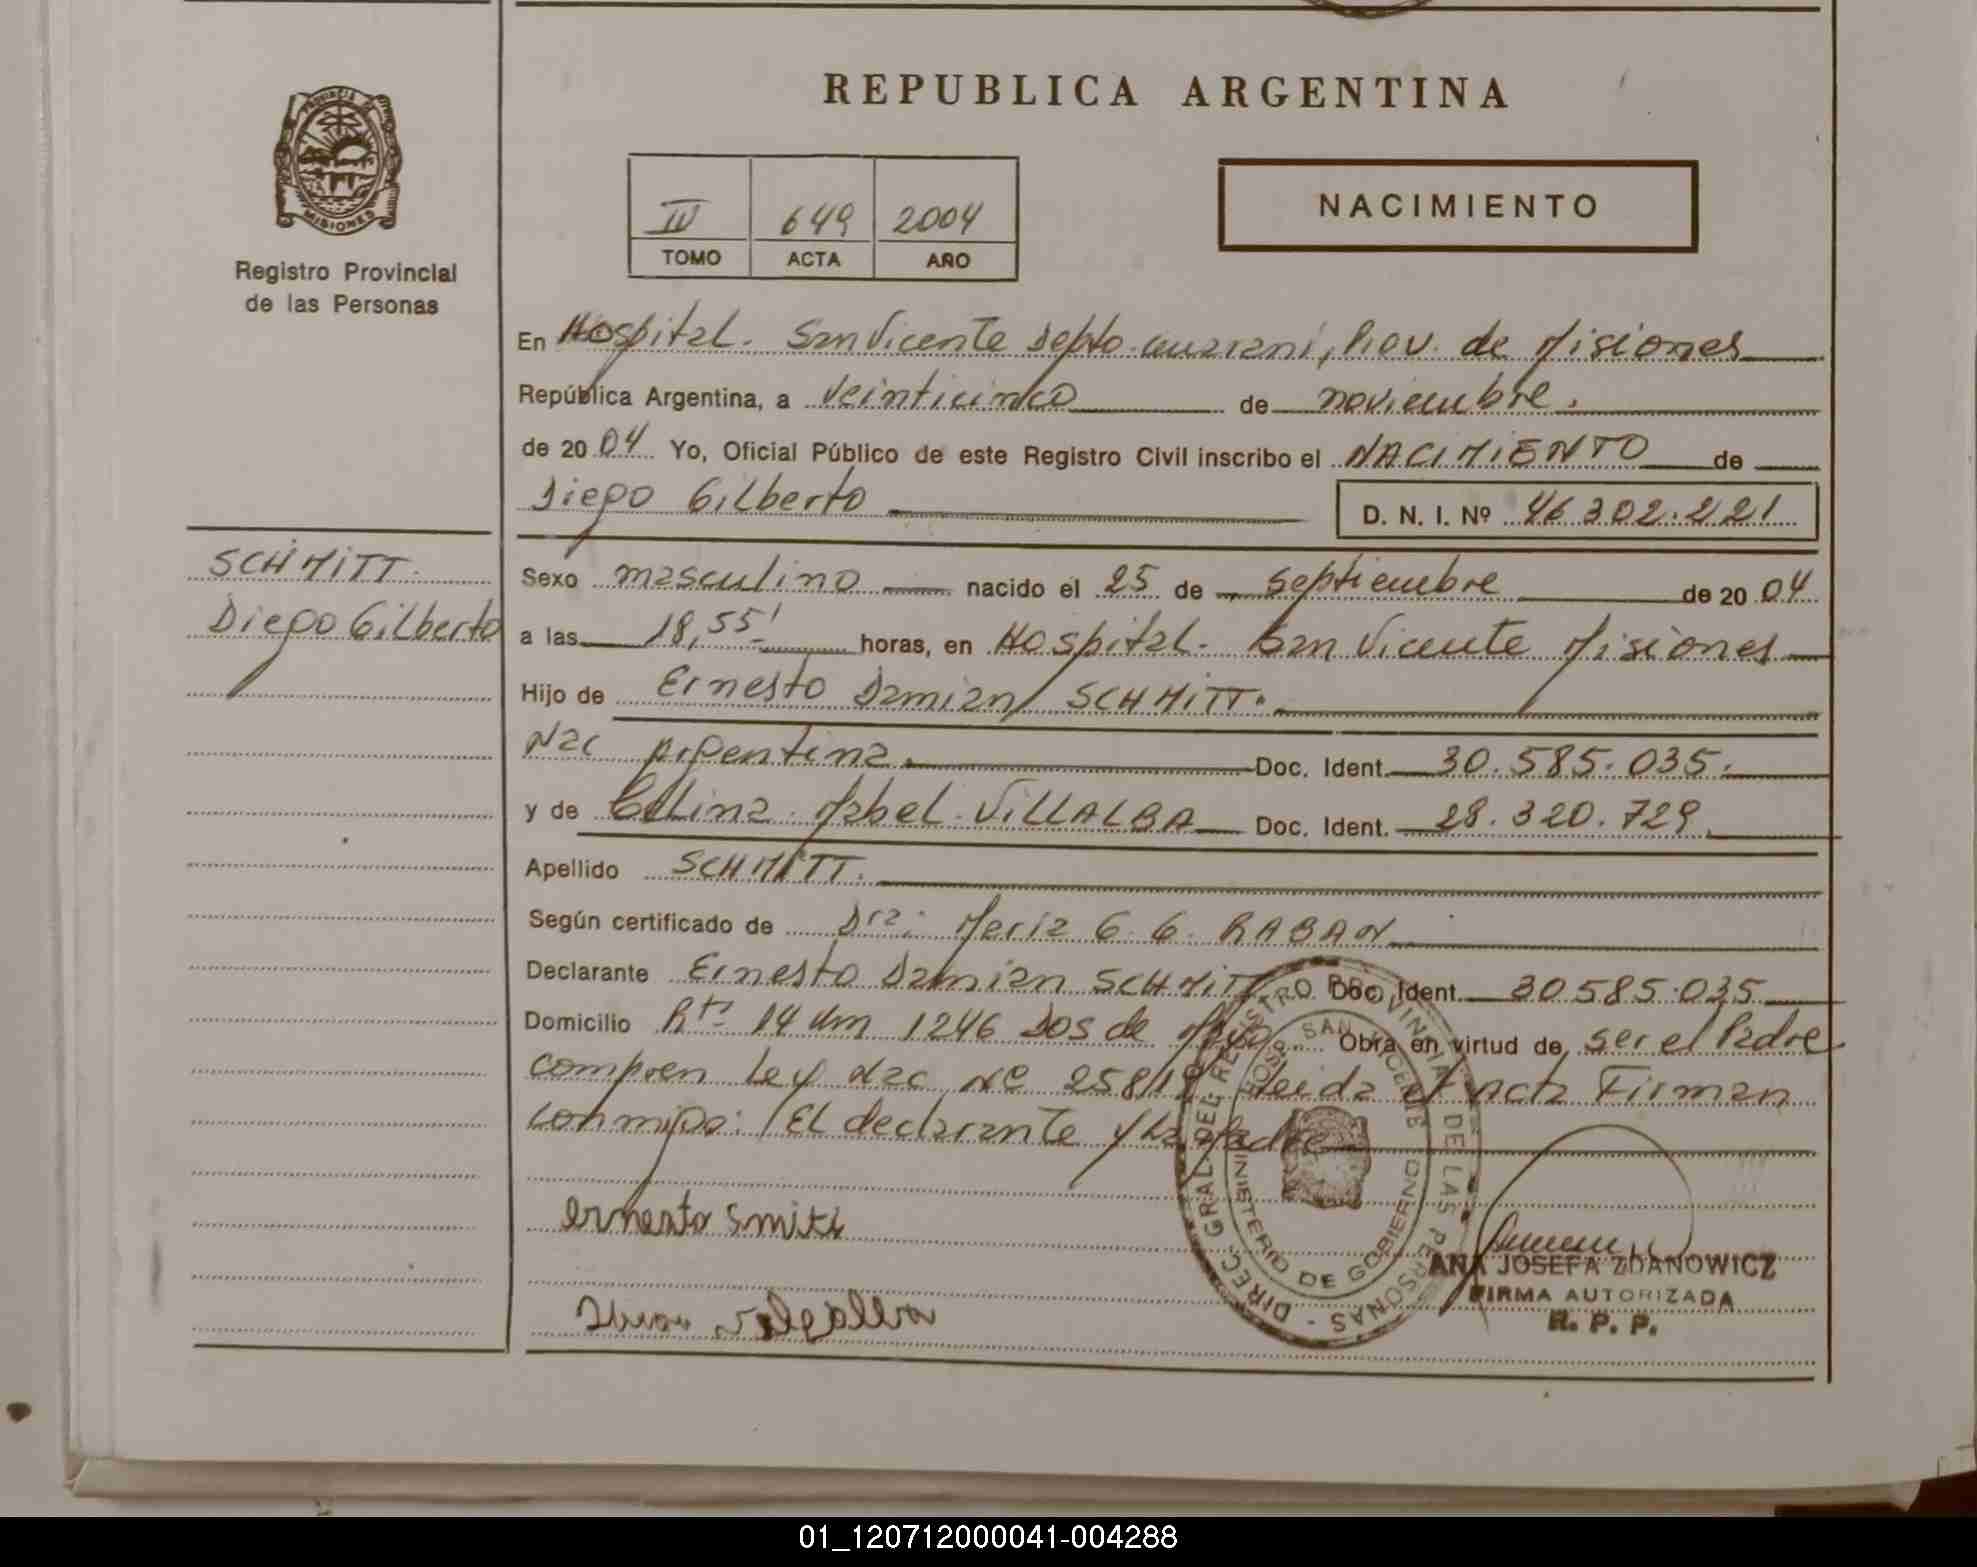 REPUBLICA ARGENTINA
PROVINCIA DE
MISIONES
Registro Provincial
de las Personas
IV 649 2004
TOMO ACTA AÑO
NACIMIENTO
En Hospital. San Vicente Depto. Guarani, Prov. de Misiones
República Argentina, a veinticinco de noviembre.
de 2004 Yo, Oficial Público de este Registro Civil inscribo el NACIMIENTO de
Diego Gilberto D. N. I. Nº 46.302.221
SCHMITT.
Diego Gilberto
Sexo masculino nacido el 25 de septiembre de 2004
a las 18,55' horas, en Hospital. San Vicente Misiones
Hijo de Ernesto Damian SCHMITT.
Nac Argentina. Doc. Ident. 30.585.035.
y de Mabel VILLALBA Doc. Ident. 28.320.729
Apellido SCHMITT.
Según certificado de Dra: Maria G. G. RABAN
Declarante Ernesto Damian SCHMITT Doc. Ident. 30.585.035
Domicilio Rta 14 Km 1246 Dos de Mayo Obra en virtud de ser el Padre
Ley Nac Nº Leida el Acta Firman
conmigo: El declarante y La Madre
DIREC. GRAL. DEL REGISTRO PROVINCIAL DE LAS PERSONAS -
HOSP. SAN VICENTE
MINISTERIO DE GOBIERNO
ernesto Smitt
ANA JOSEFA ZDANOWICZ
FIRMA AUTORIZADA
R. P. P.
01_120712000041-004288